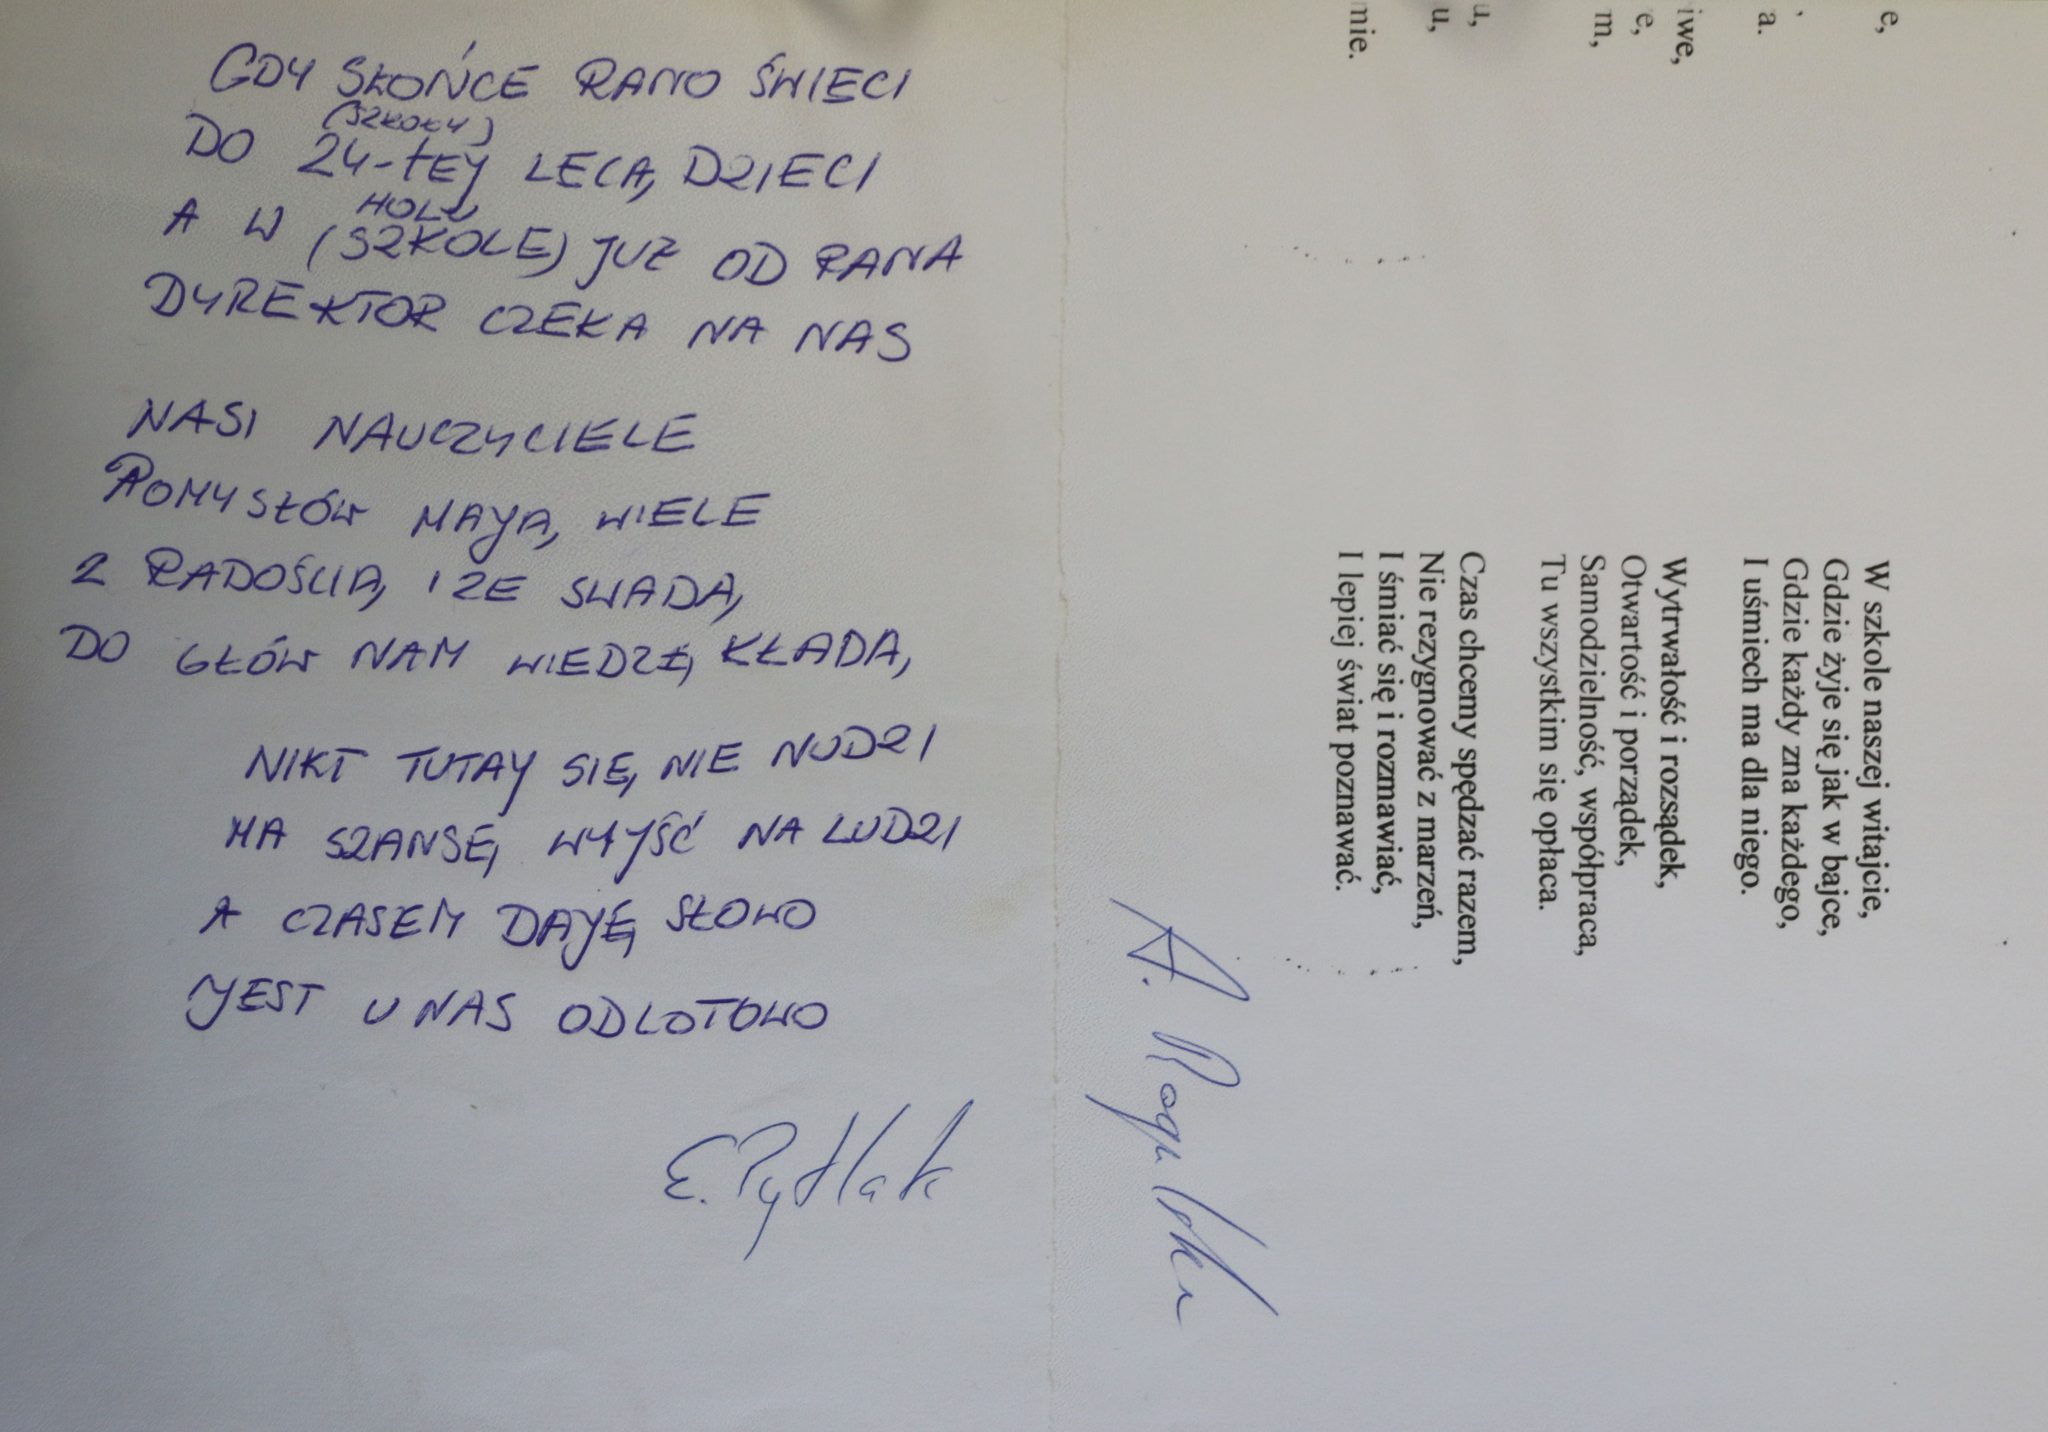 GDY SŁOŃCE RANO ŚWIECI
(SZKOŁY)
DO 24-TEJ LECĄ DZIECI
HOLU
A W (SZKOLE) JUŻ OD RANA
DYREKTOR CZEKA NA NAS
NASI NAUCZYCIELE
POMYSŁÓW MAJĄ WIELE
Z RADOŚCIĄ I ZE SWADĄ
DO GŁÓW NAM WIEDZĘ KŁADĄ
NIKT TUTAJ SIĘ NIE NUDZI
MA SZANSĘ WYJŚĆ NA LUDZI
A CZASEM DAJĘ SŁOWO
JEST U NAS ODLOTOWO
E. Pytlak
e,
a.
,
iwe,
e,
m,
u,
u,
nie.
W szkole naszej witajcie,
Gdzie żyje się jak w bajce,
Gdzie każdy zna każdego,
I uśmiech ma dla niego.
Wytrwałość i rozsądek,
Otwartość i porządek,
Samodzielność, współpraca,
Tu wszystkim się opłaca.
Czas chcemy spędzać razem,
Nie rezygnować z marzeń,
I śmiać się i rozmawiać,
I lepiej świat poznawać.
A.